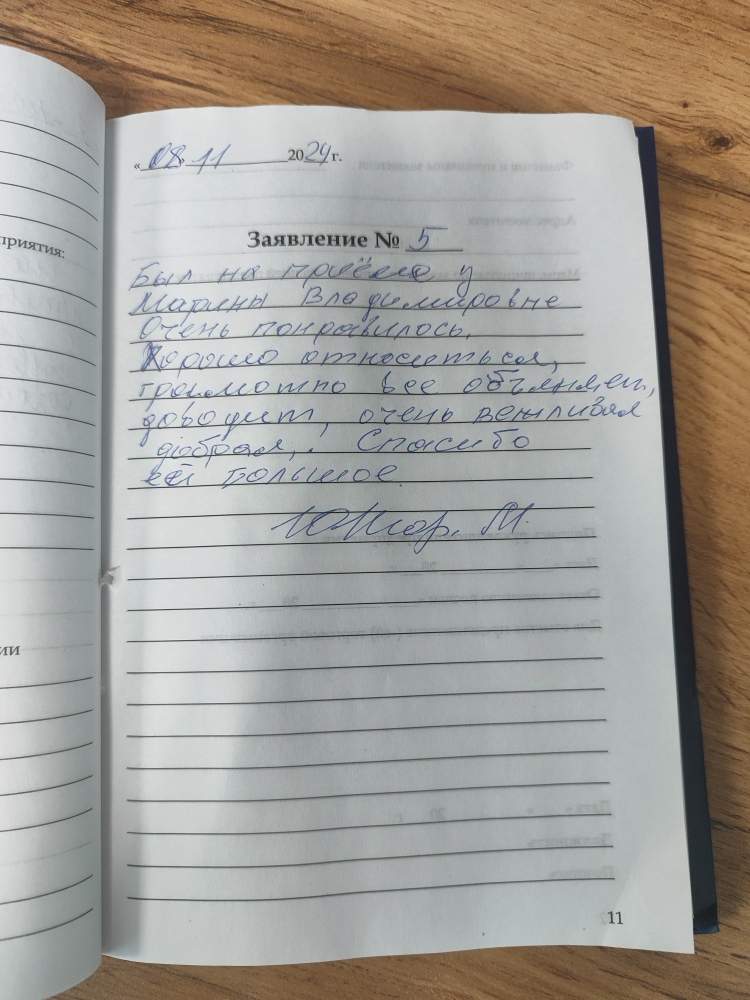 приятия:
ии
« 08 » 11 2024 г.
Заявление № 5
Был на приёме у
Марины Владимировне
Очень понравилось.
Хорошо относиться,
грамотно все объяняет,
доводит, очень вежливая
добрая,. Спасибо
ей большое.
М.
11